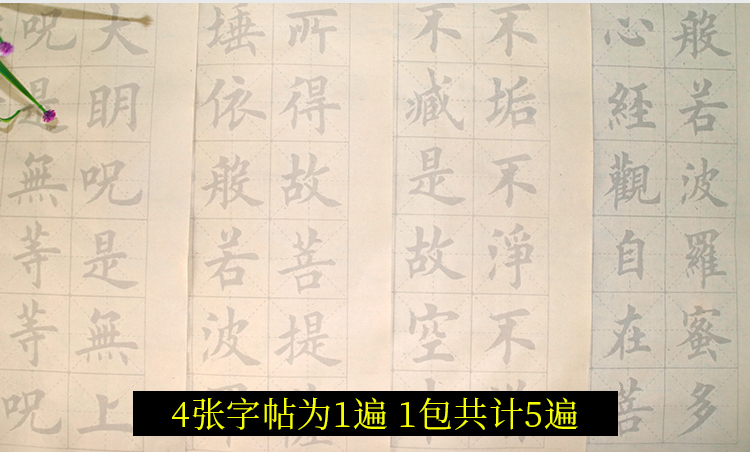 般若波羅蜜多
心經觀自在菩
不垢不淨不
不減是故空
所得故菩提薩
埵依般若波
大明呪是無上
呪是無等等呪
4张字帖为1遍 1包共计5遍